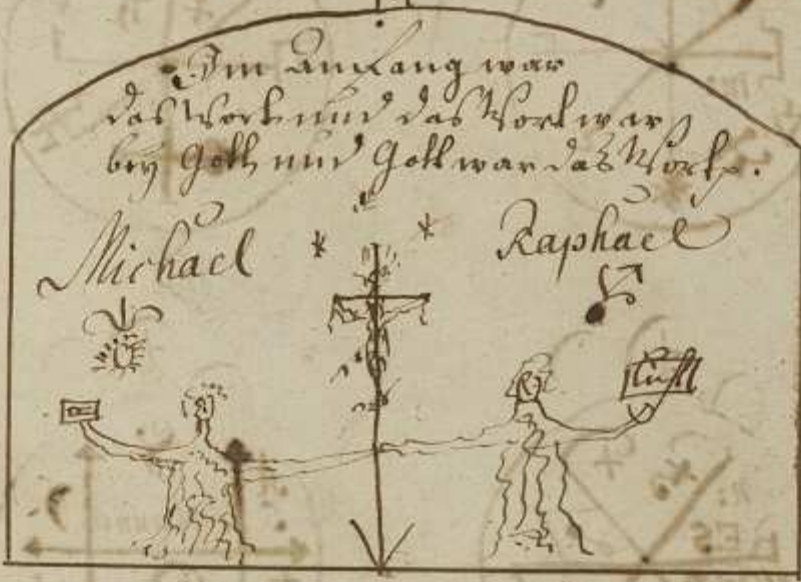 Im Anfang war
das Wort und das Wort war
bey Gott und Gott war das Wort.
Michaël
Raphaël
Lufft